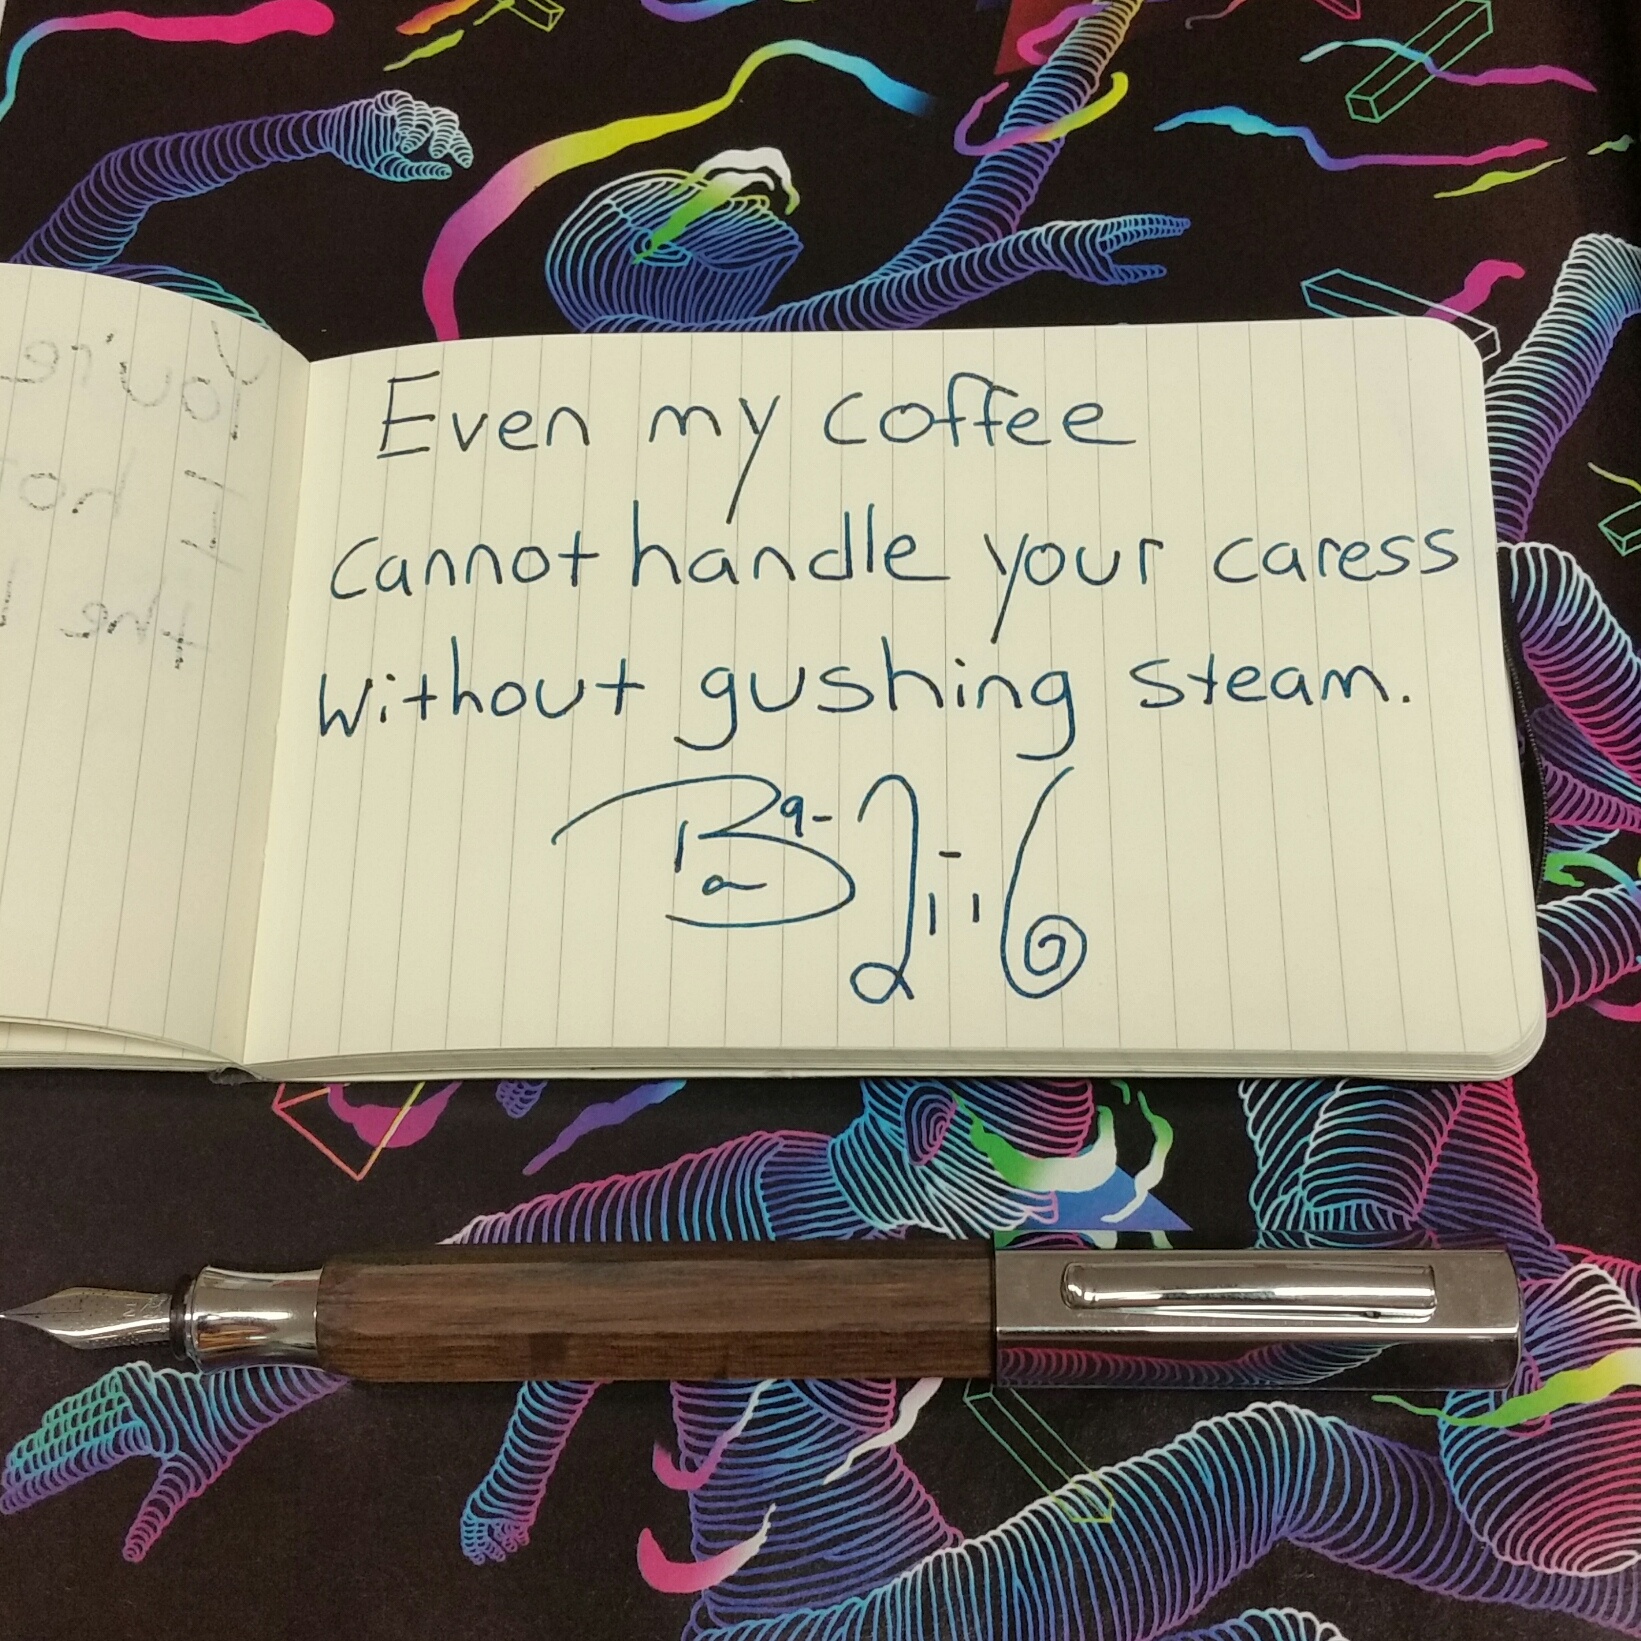 Even my coffee
cannot handle your caress
without gushing steam.